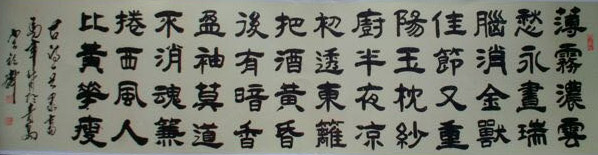 薄霧濃雲
愁永晝瑞
腦消金獸
佳節又重
陽玉枕紗
廚半夜凉
初透東籬
把酒黃昏
後有暗香
盈袖莫道
不消魂簾
捲西風人
比黃華瘦